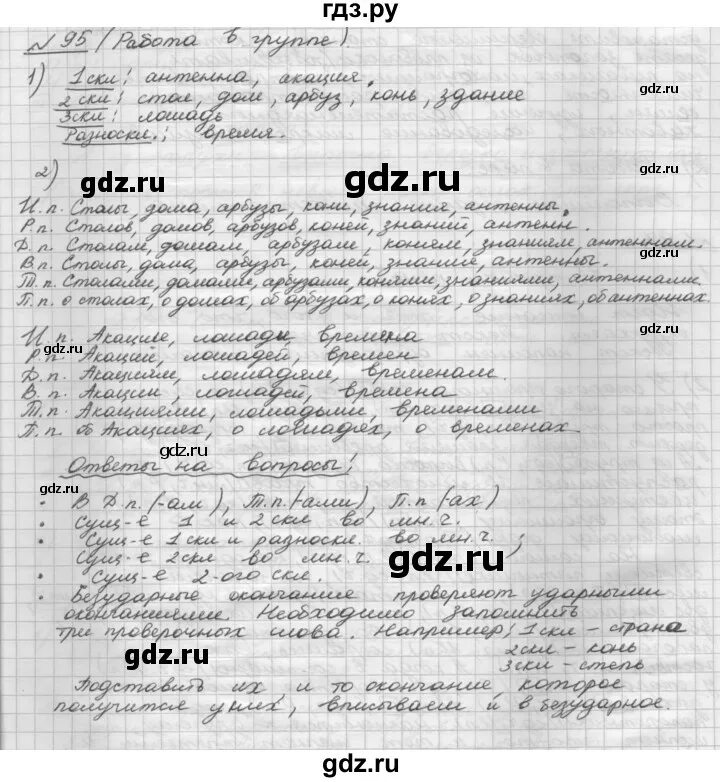 гдз.ру
№ 95 (Работа в группе)
1) 1 скл: антенна, акация.
2 скл: стол, дом, арбуз, конь, здание
3 скл: лошадь
Разноскл.: время.
2)
И.п. Столы, дома, арбузы, кони, знания, антенны.
Р.п. Столов, домов, арбузов, коней, знаний, антенн.
Д.п. Столам, домам, арбузам, коням, знаниям, антеннам.
В.п. Столы, дома, арбузы, коней, знания, антенны.
Т.п. Столами, домами, арбузами, конями, знаниями, антеннами.
П.п. о столах, о домах, об арбузах, о конях, о знаниях, об антеннах.
И.п. Акации, лошади, времена
Р.п. Акаций, лошадей, времен
Д.п. Акациям, лошадям, временам.
В.п. Акации, лошадей, времена
Т.п. Акациями, лошадьми, временами
П.п. об Акациях, о лошадях, о временах.
Ответы на вопросы:
• В Д.п. (-ам), Т.п. (-ами), П.п. (-ах)
• Сущ-е 1 и 2 скл во мн.ч.
• Сущ-е 1 скл и разноскл. во мн.ч.;
Сущ-е 2 скл во мн.ч.
• Сущ-е 2-ого скл.
• Безударные окончания проверяют ударными
окончаниями. Необходимо запомнить
три проверочных слова. Например: 1 скл – страна
2 скл – конь
3 скл – степь
Подставить их, и то окончание, которое
получится у них, вписываем и в безударное.
gdz.ru
gdz.ru
gdz.ru
gdz.ru
gdz.ru
gdz.ru
gdz.ru
gdz.ru
gdz.ru
gdz.ru
gdz.ru
gdz.ru
gdz.ru
gdz.ru